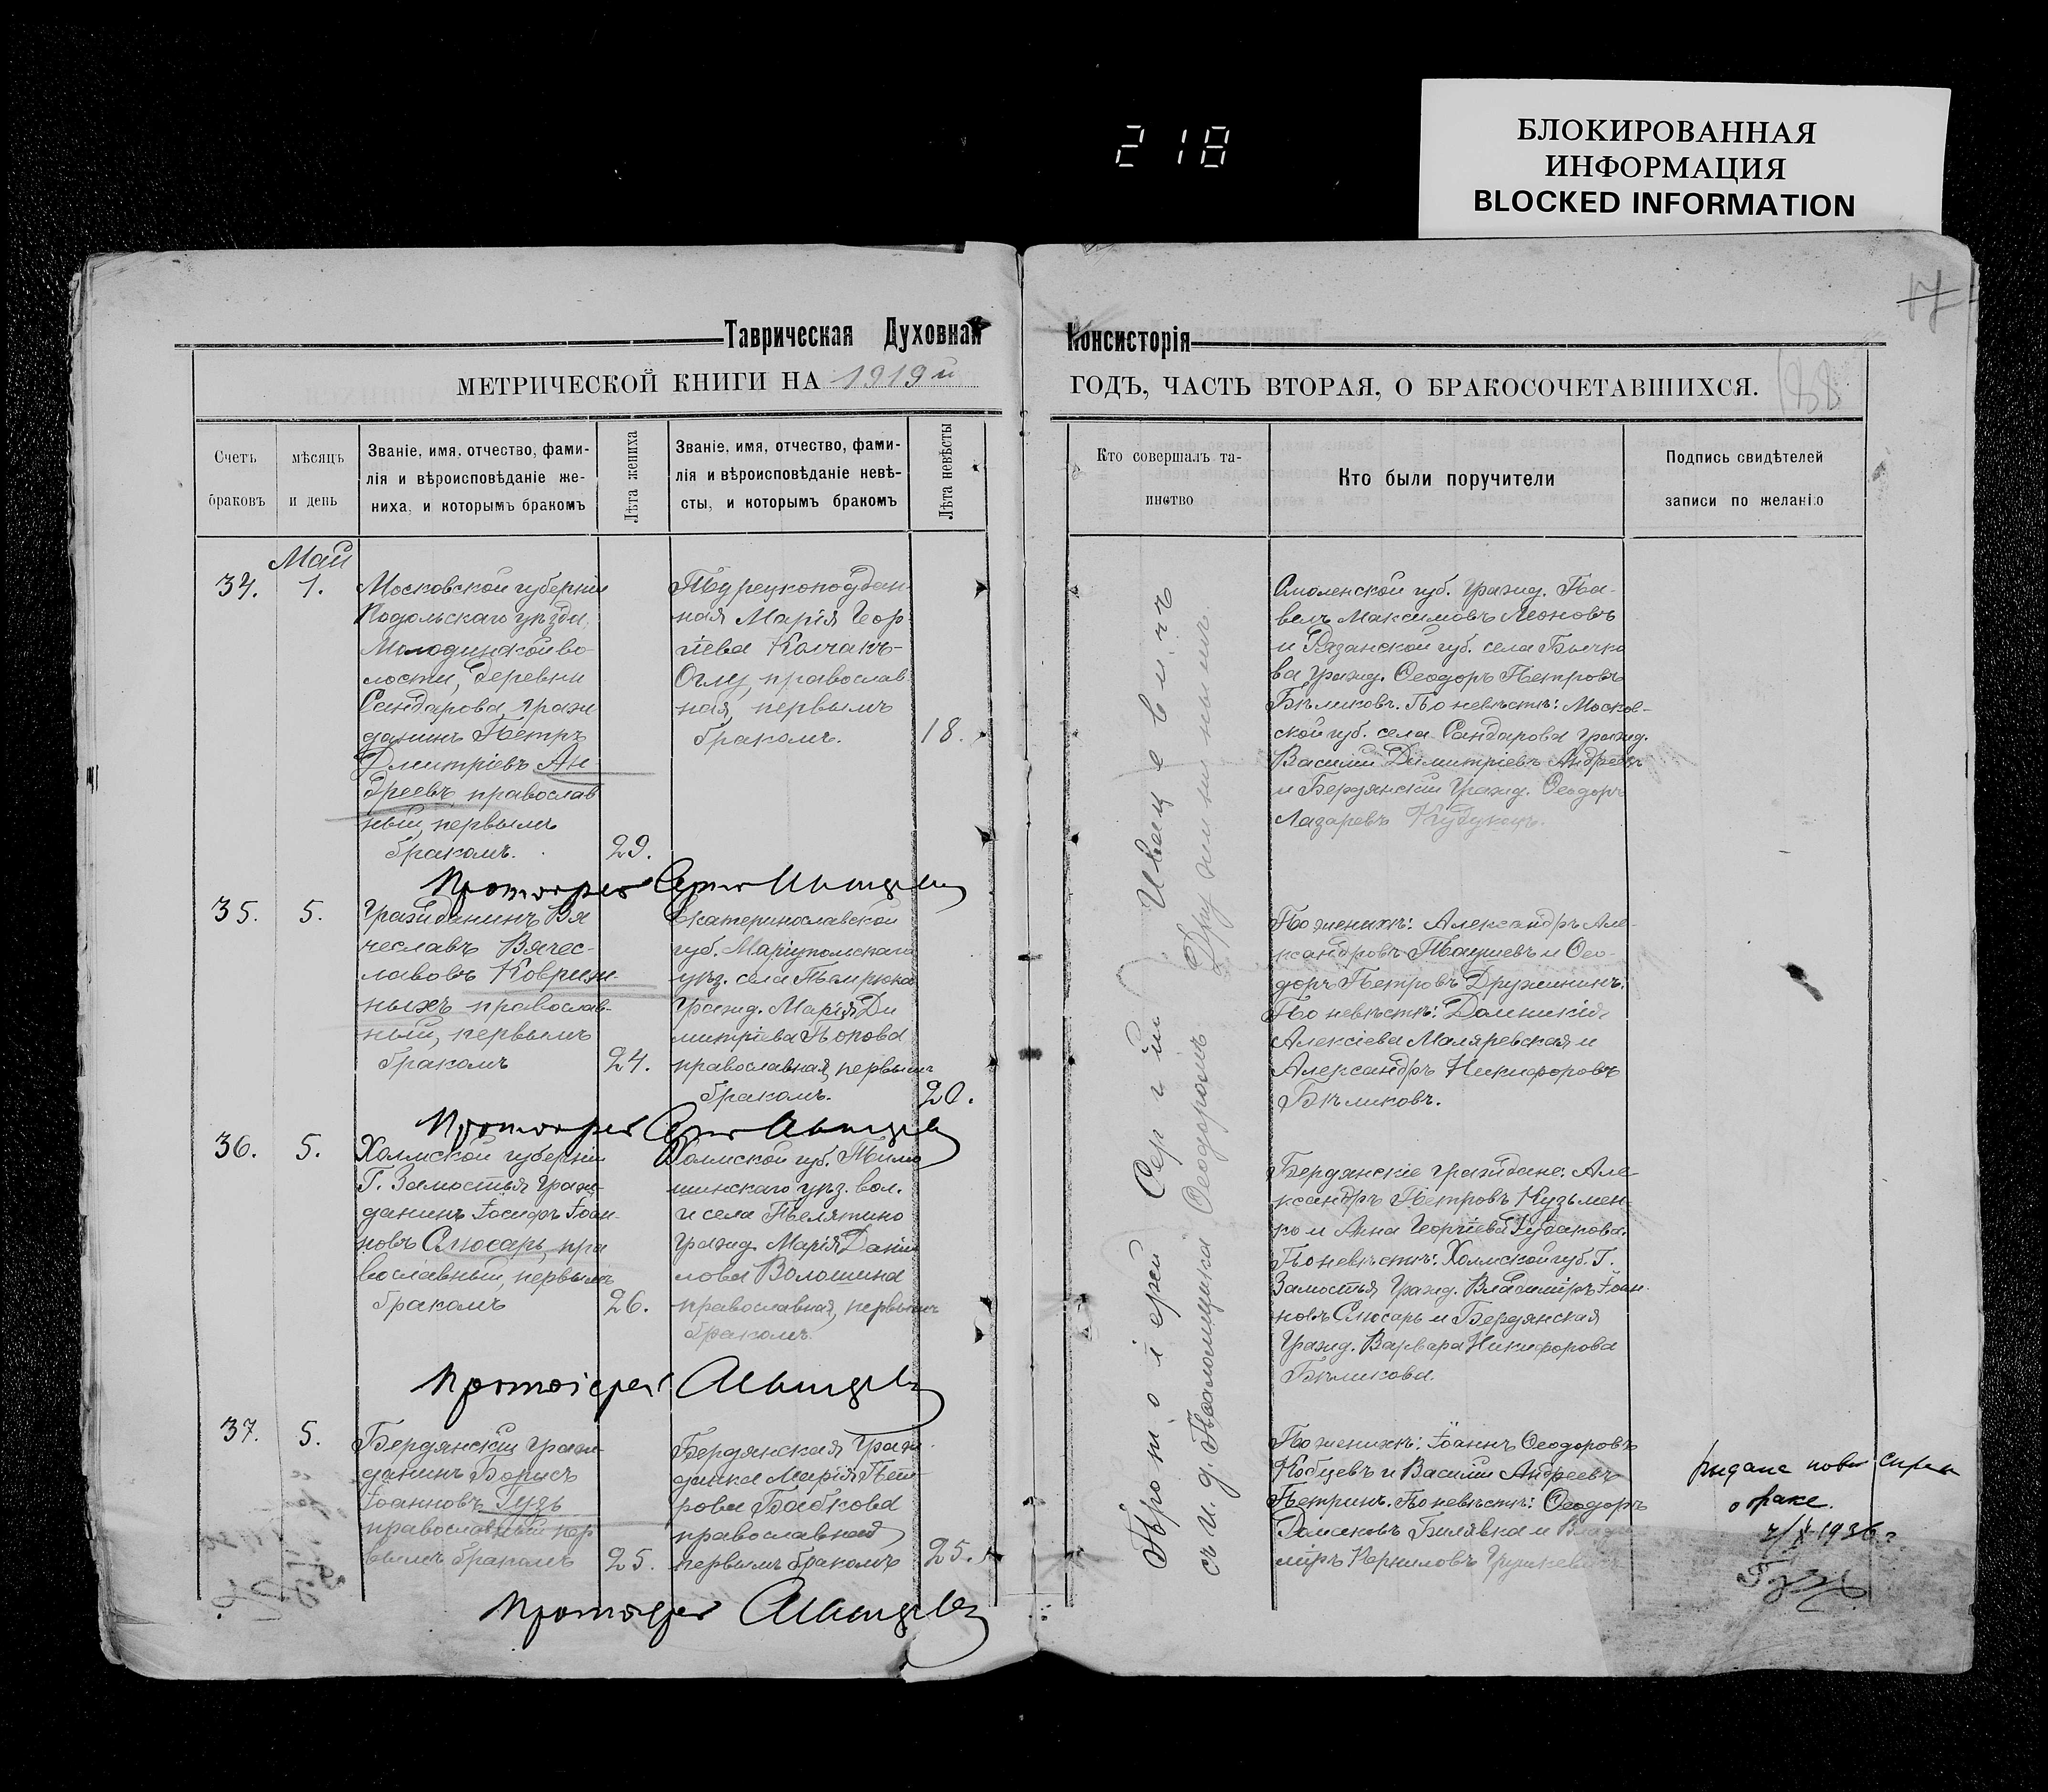 218
БЛОКИРОВАННАЯ
ИНФОРМАЦИЯ
BLOCKED INFORMATION
17
Таврическая Духовная Консисторія
МЕТРИЧЕСКОЙ КНИГИ НА 1919й ГОДЪ, ЧАСТЬ ВТОРАЯ, О БРАКОСОЧЕТАВШИХСЯ.
188
Счетъ
браковъ
мѣсяцъ
и день
Званіе, имя, отчество, фами-
лія и вѣроисповѣданіе же-
ниха, и которымъ бракомъ
Лѣта жениха
Званіе, имя, отчество, фами-
лія и вѣроисповѣданіе невѣ-
сты, и которымъ бракомъ
Лѣта невѣсты
Кто совершалъ та-
инство
Кто были поручители
Подпись свидѣтелей
записи по желанію
Май
34.
1.
Московской губерніи
Подольскаго уѣзда,
Молодинской во-
лости, деревни
Сандарова, граж
данинъ Петръ
Дмитріевъ Ан
дреевъ, православ
ный, первымъ
бракомъ.
29.
Турецкоподдан-
ная Марія Геор-
гіева Колчакъ-
Оглу, православ
ная, первымъ
бракомъ.
18.
Смоленской губ. гражд. Па-
велъ Максимовъ Леоновъ
и Рязанской губ. села Бычко
ва гражд. Ѳеодоръ Петровъ
Бѣликовъ. По невѣстѣ: Москов-
ской губ. села Сандарова гражд.
Василій Димитріевъ Андреевъ
и Бердянскій гражд. Ѳеодоръ
Лазаревъ
Протоіерей
35.
5.
Гражданинъ Вя
чеславъ Вячес-
лавовъ Ковриж-
ныхъ православ-
ный, первымъ
бракомъ
24.
Екатеринославской
губ. Маріупольскаго
уѣз. села Темрюка
гражд. Марія Ди
митріева Попова
православная, первымъ
бракомъ.
20.
По женихѣ: Александръ Але-
ксандровъ и Ѳео-
доръ Петровъ Дружининъ.
По невѣстѣ: Домникія
Алексіева Маляревская и
Александръ Никифоровъ
Бѣликовъ.
Протоіерей
36.
5.
Холмской губерніи
Г. Замостья граж-
данинъ Іосифъ Іоан-
новъ Слюсарь, пра
вославный, первымъ
бракомъ
26.
Холмской губ. Тома
шинскаго уѣз. вол.
и села Телятино
гражд. Марія Дані
лова Волошина
православная, первымъ
бракомъ.
Бердянскіе граждане: Але-
ксандръ Петровъ Кузьмен-
ко и Анна Георгіева
По невѣстѣ: Холмской губ. Г.
Замостья гражд. Владиміръ Іоан-
новъ Слюсарь и Бердянская
гражд. Варвара Никифорова
Бѣликова.
Протоіерей
37.
5.
Бердянскій граж-
данинъ Борисъ
Іоанновъ Гузь
православный пер
вымъ бракомъ
25.
Бердянская граж-
данка Марія Пет-
рова Бабкова
православная
первымъ бракомъ
25.
По женихѣ: Іоаннъ Ѳеодоровъ
Кобцевъ и Василій Андреевъ
Петринъ. По невѣстѣ: Ѳеодоръ
Билявка и
Протоіерей
Протоіерей Сергій Иванцевичъ
съ и. д. Псаломщика Ѳеодоромъ Дружининымъ.
о браке.
1936г